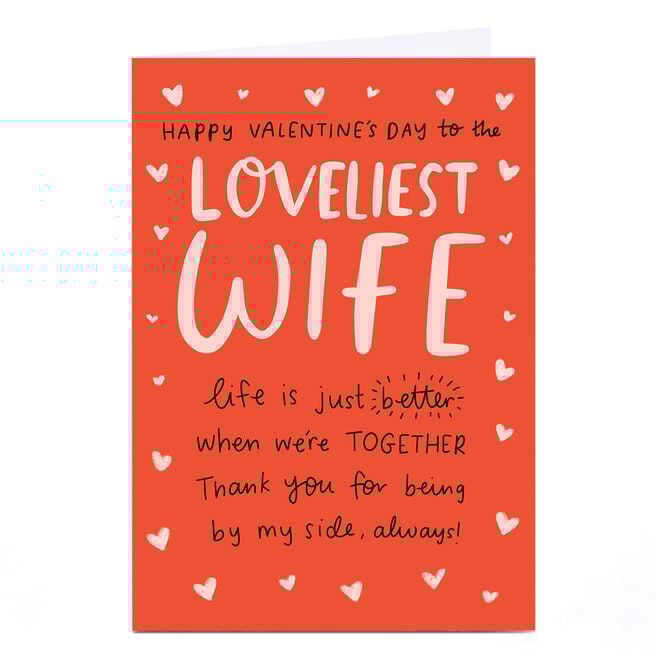 HAPPY VALENTINE'S DAY to the
LOVELIEST
WIFE
life is just better
when we're TOGETHER
Thank you for being
by my side, always!